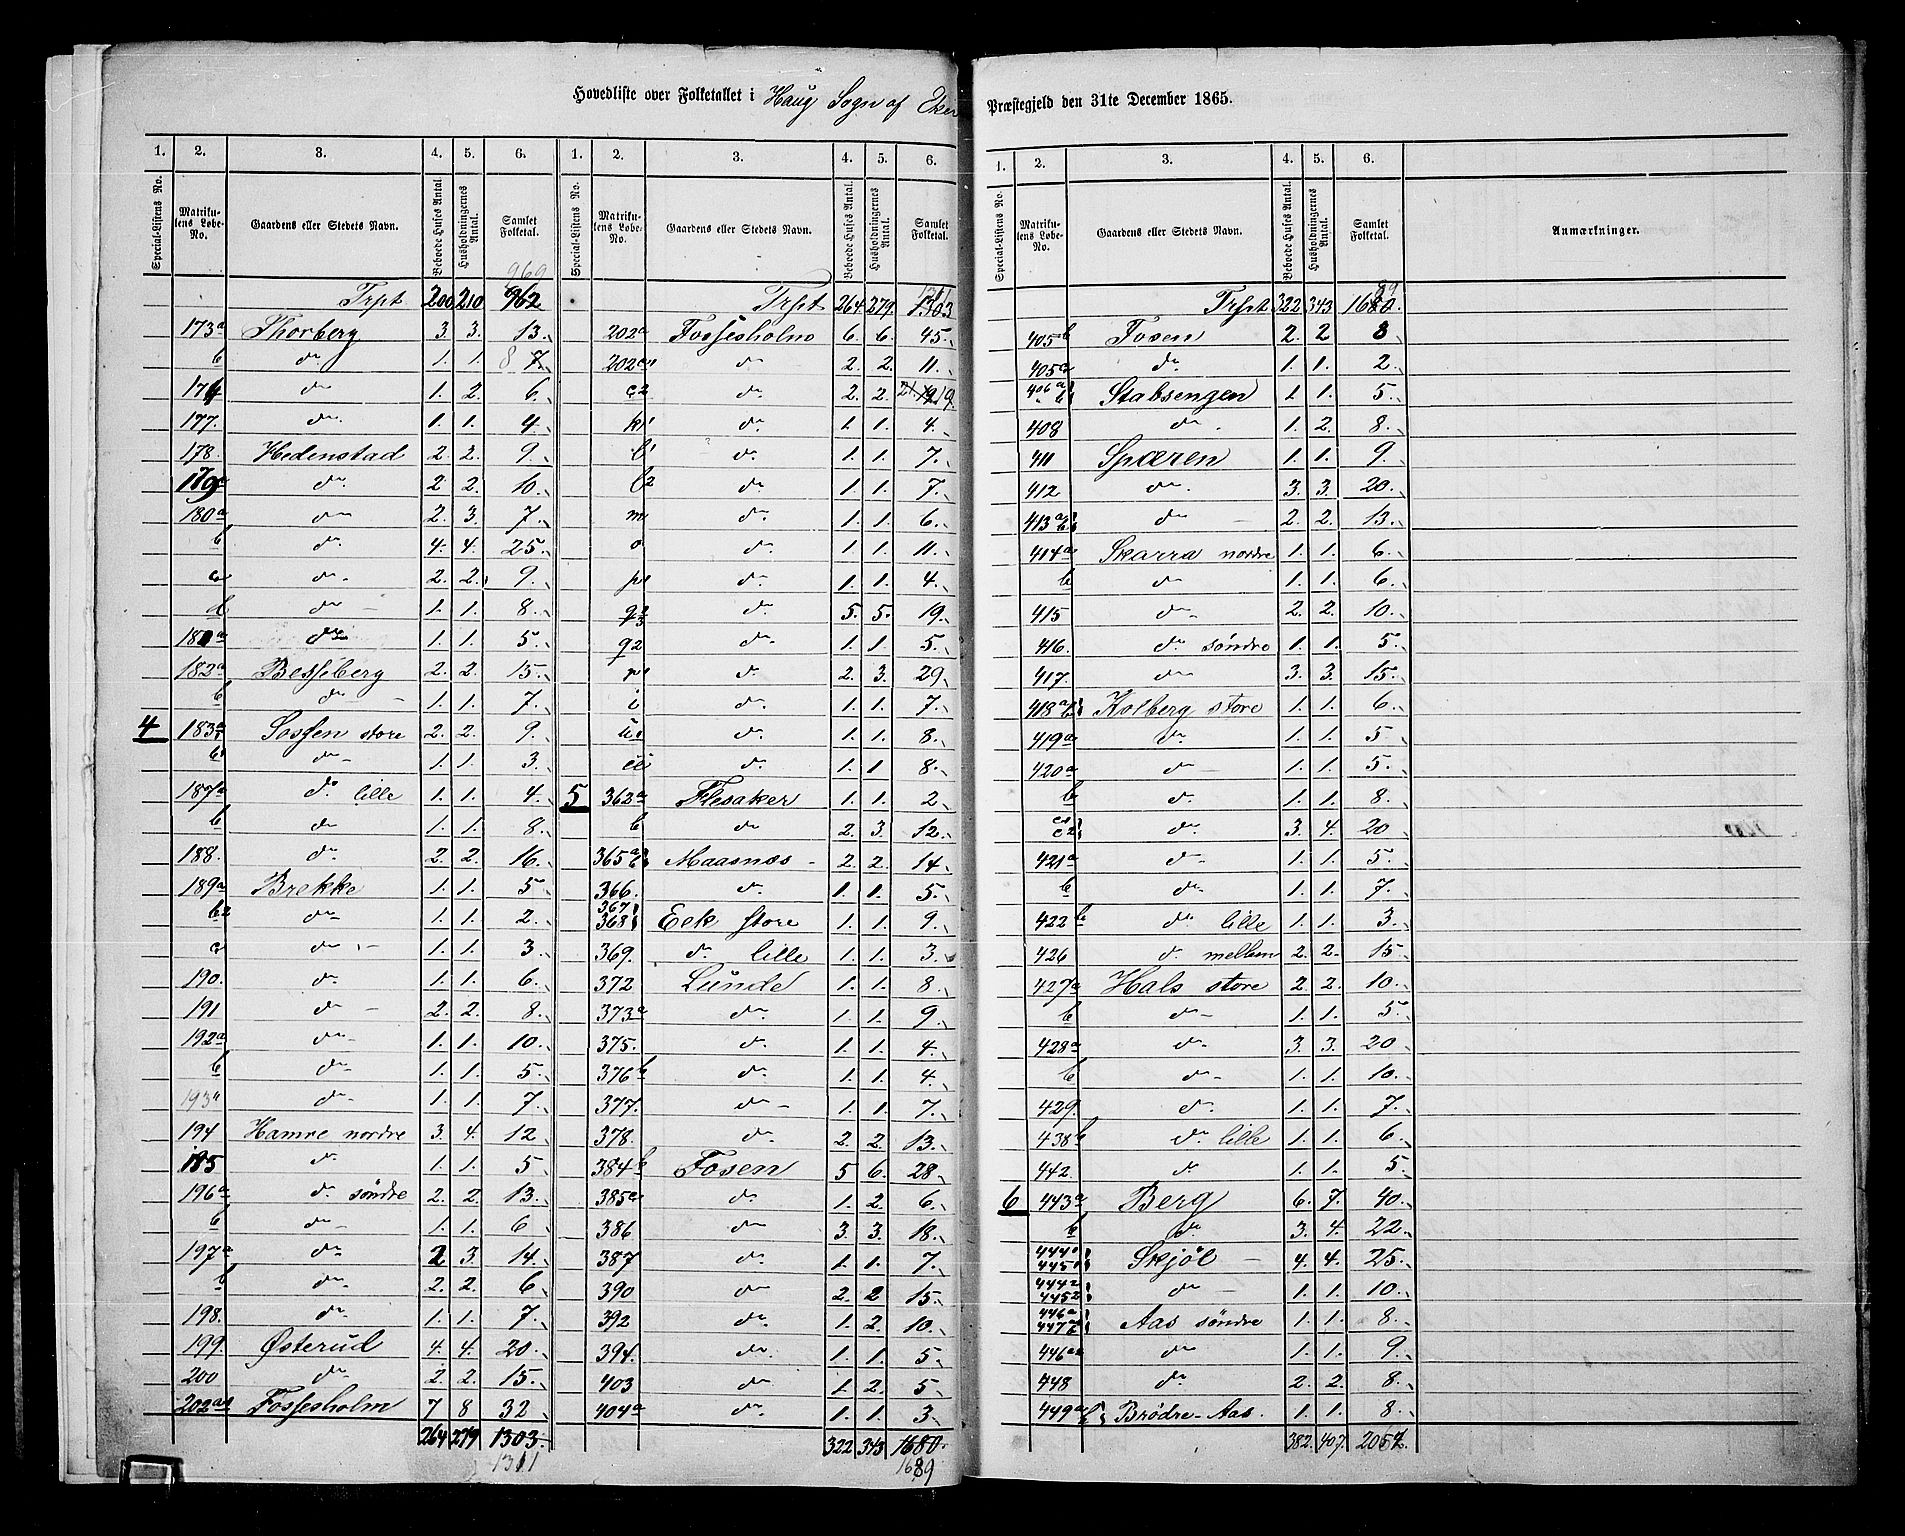 Hovedliste over Folketallet i Haug Sogn af Eker Præstegjeld den 31te December 1865.
1. 2. 3. 4. 5. 6.
Special-Listens No. Matrikulens Løbe-No. Gaardens eller Stedets Navn. Beboede Huses Antal. Husholdningernes Antal. Samlet Folketal.
969
Trpt 200 210 962
173a Thorberg 3. 3. 13.
b do 1. 1. 8 7
176 do 1. 2. 6.
177. do. 1. 1. 4.
178. Hedenstad 2. 2. 9.
179a do. 2. 2. 10.
180a do 2. 3. 7.
b do. 4. 4. 25.
c do- 2. 2. 9.
d do- 1. 1. 8.
181a do 1. 1. 5.
182a Besseberg 2. 2. 15.
b do- 1. 1. 7.
4 183a Sossen store 2. 2. 9.
b1 do- 1. 1. 3.
187a do. lille 1. 1. 4.
b do 1. 1. 8.
188. do. 2. 2. 16.
189a Brekke 1. 1. 5.
b2 do- 1. 1. 2.
c do- 1. 1. 3.
190. do. 1. 1. 6.
191 do- 2. 2. 8.
192a do- 1. 1. 10.
b do- 1. 1. 5.
193a do- 1. 1. 7.
194 Hamre nordre 3. 4. 12
195 do. 1. 1. 5
196a do. søndre 2. 2. 13.
b do- 1. 1. 6
197a do. 2 3. 14.
b do. 2. 2. 6
198. do. 1. 1. 7.
199. Østerud 4. 4. 20.
200 do- 2. 2. 15.
202a1 Fossesholm 7 8 32
264 279 1303.
1311
1. 2. 3. 4. 5. 6.
Special-Listens No. Matrikulens Løbe-No. Gaardens eller Stedets Navn. Beboede Huses Antal. Husholdningernes Antal. Samlet Folketal.
1311
Trpt 264 279. 1303
202a Fossesholm 6. 6. 45.
202c1 do 2. 2. 11.
c2 do. 2. 2. 21 19 19.
k1 do. 1. 1. 4.
l1 do. 1. 1. 7.
l2 do. 1. 1. 7.
m do. 1. 1. 6.
o do. 1. 1. 11.
p1 do. 1. 1. 4.
q3 do. 5. 5. 19.
q2 do. 1. 1. 5.
r do. 2. 3. 29.
i do. 1. 1. 7.
do. 1. 1. 8.
do. 1. 1 8.
5 362a Flesaker 1. 1. 2.
b do 2. 3. 12.
365ab Maasnæs - 2. 2. 14.
366. do. 1. 1. 5.
367
368 Eek store 1. 1. 9.
369. do. lille 1. 1. 3.
372 Lunde 1. 1. 8.
373a do. 1. 1. 9.
375. do. 1. 1. 4.
376b do. 1. 1. 4.
377. do- 1. 1. 7.
378. do 2. 2. 13.
384b Fosen 5 6. 28.
385a do. 1. 2. 6.
386 do 3. 3. 18.
387 do. 1. 1. 7.
390 do 2. 2 15.
392 do. 1. 2. 10.
394. do. 1. 1. 5
403 do 1. 2. 5
404a do. 1. 1. 3.
322 343 1680.
1689
1. 2. 3. 4. 5. 6.
Special-Listens No. Matrikulens Løbe-No. Gaardens eller Stedets Navn. Beboede Huses Antal. Husholdningernes Antal. Samlet Folketal. Anmærkninger.
89
Trpt 322 343 1680.
405b Fosen 2. 2 8
405c do. 1. 1. 2.
406ab Stabsengen 1 1. 5.
408 do. 1. 2. 8.
411 Spæren 1. 1. 9.
412 do. 3. 3. 20.
413ab do - 2. 2. 13.
414a Skarra nordre 1. 1. 6.
b do 1. 1. 6.
415 do- 2. 2. 10.
416. do søndre 1. 1. 5
417. do- 3. 3. 15.
418ab Kolberg store 1. 1. 6
419a do. 1. 1. 5.
420a do- 1. 1. 5.
b do. 1. 1. 8.
c1
c2 do. 3. 4. 20
421a do- 1. 1. 5.
b do. 1. 1. 7.
422b do lille 1. 1. 3.
426 do. mellem 2. 2. 15
427a Hals store 2. 2. 10.
b do- 1. 1. 5.
428a do. 3. 3. 20
b do- 1. 1. 10.
429. do. 1. 1. 7.
438b do. lille 1. 1. 6
442. do 1. 1. 5.
6 443a Berg 6. 7. 40.
b do. 3. 4. 22.
444 1
445 1 Skjøl - 4. 4. 25.
444 2
445 2 do- 1. 1. 10.
446a
447 Aas søndre 1. 1. 8.
446 do 1. 1. 9.
448 do. 2. 2. 8.
449a Brødre-Aas. 1. 1. 8.
382. 407. 2057.